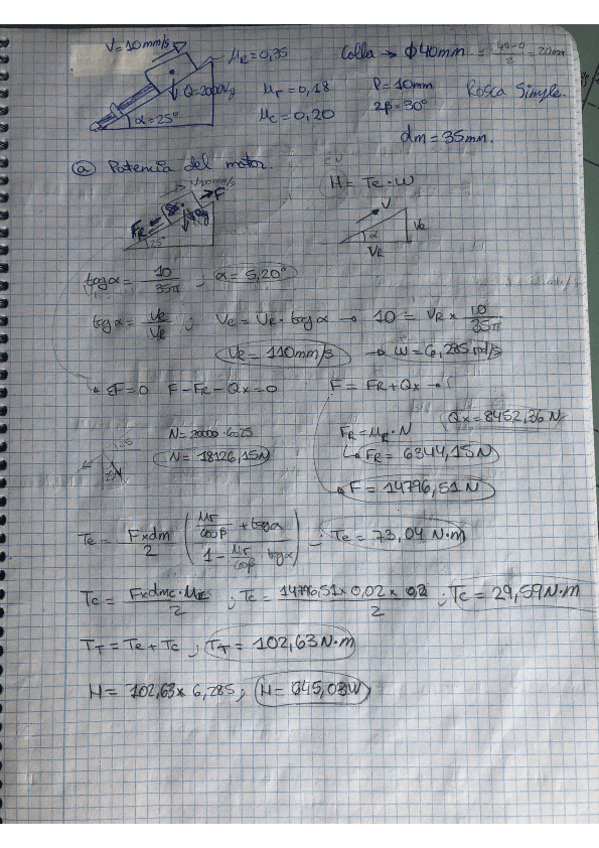 V=10mm/s
μR=0,35
Collar → ϕ40mm = (40-0)/2 = 20mm
Q=2000Kg
μr=0,18
P=10mm
Rosca Simple.
α=25°
μc=0,20
2β=30°
dm=35mm.
a) Potencia del motor.
CV
H = Te·ω
F
FR
25°
V
α
VR
tagα = 10/35π ; α=5,20°
tagα = Ve/VR ; Ve = VR·tagα → 10 = VR × 10/35π
VR = 110mm/s → ω=6,285rad/s
ΣF=0 F-FR-Qx=0 F = FR+Qx →
Qx=8452,36N
N=20000·cos25
N=18126,15N
FR=μR·N
FR=6344,15N
F=14796,51N
Te = Fxdm/2 ( (μr/cosβ + tagα) / (1 - μr/cosβ tagα) ) ; Te=73,04 N·m
Tc = Fxdmc·μc/2 ; Tc = 14796,51×0,02×0,2/2 ; Tc=29,59N·m
TT=Te+Tc ; TT=102,63N·m
H=102,63×6,285 ; H=645,03W